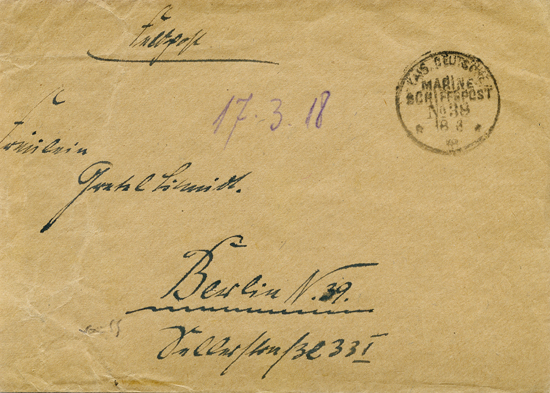 Feldpost
KAIS. DEUTSCHE
MARINE
SCHIFFSPOST
No 39
18 3
17.3.18
Fräulein
Gretel Schmidt.
Berlin N. 39.
Sellerstraße 33 I